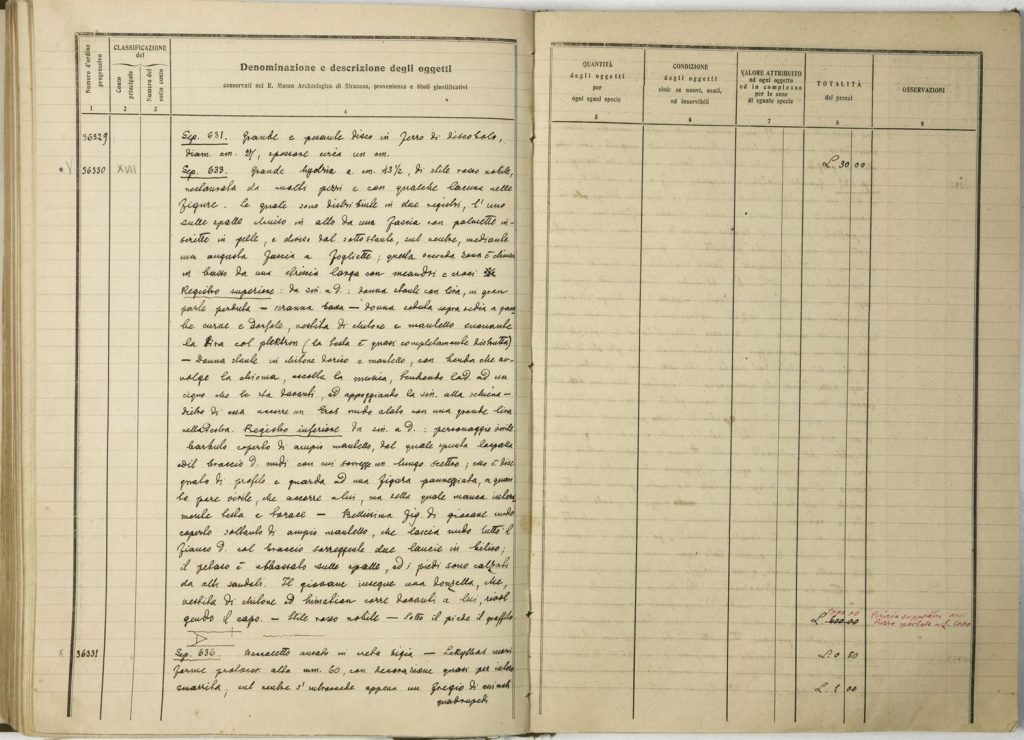 Numero d'ordine progressivo
CLASSIFICAZIONE del
Conto principale
Numero del sotto conto
Denominazione e descrizione degli oggetti
conservati nel R. Museo Archeologico di Siracusa, provenienza e titoli giustificativi
1 2 3 4
36329 Sep. 631. Grande e pesante disco in ferro di discobolo,
diam. cm. 27, spessore circa un cm.
36330 XVII Sep. 633. Grande hydria a. cm. 43 1/2, di stile rosso nobile,
restaurata da molti pezzi e con qualche lacuna nelle
figure. le quale sono distribuite in due registri, l'uno
sulle spalle chiuso in alto da una fascia con palmette in-
scritte in pelle, e diviso dal sottostante, sul ventre, mediante
un angusta fascia a fogliette; questa seconda zona è chiusa
in basso da una striscia larga con meandri e croci
Registro superiore: da sin. a D.: donna stante con lira, in gran
parte perduta – scranna bassa – donna seduta sopra sedia a gam
be curve e dorsale, vestita di chitone e mantello suonante
la lira col plektron (la testa è quasi completamente distrutta)
– Donna stante in chitone dorico e mantello, con benda che av-
volge la chioma, ascolta la musica, tendendo la d. ad un
cigno che le sta davanti, ed appoggiando la sin. alla schiena –
dietro di essa accorre un Eros nudo alato con una grande lira
nella destra. Registro inferiore da sin. a D.: personaggio
barbuto coperto di ampio mantello, dal quale spunta la spalla
ed il braccio D. nudi con cui sorregge un lungo scettro; esso è dise
gnato di profilo e guarda ad una figura panneggiata, a quan
to pare virile, che accorre a lui, ma della quale manca intera
mente testa e torace – Bellissima fig. di giovane nudo
coperto soltanto di ampio mantello, che lascia nudo tutto il
fianco D. col braccio sorreggente due lancie in bilico;
il petaso è abbassato sulle spalle, ed i piedi sono calzati
da alti sandali. Il giovane insegue una donzella, che,
vestita di chitone ed himation corre davanti a lui, rivol
gendo il capo. – Stile rosso nobile – Sotto il piede il graffito
36331 Sep. 636. in creta bigia – Lekythos
forme protocor. alta mm. 60, con decorazione quasi per intero
smarrita, sul ventre s'intravvede appena un fregio di
quadrupedi
QUANTITÀ degli oggetti per ogni egual specie
CONDIZIONE degli oggetti cioè: se nuovi, usati, od inservibili
VALORE ATTRIBUITO ad ogni oggetto ed in complesso per le cose di eguale specie
TOTALITÀ dei prezzi
OSSERVAZIONI
5 6 7 8 9
L. 30 00
1000.00
L. 600.00
portata a L. 1000
L. 0 50
L. 1 00